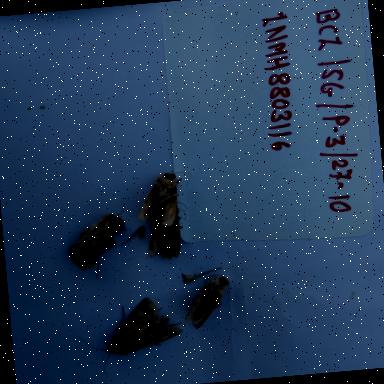 BCZ/SG/P-3/27-10
INMH8803116